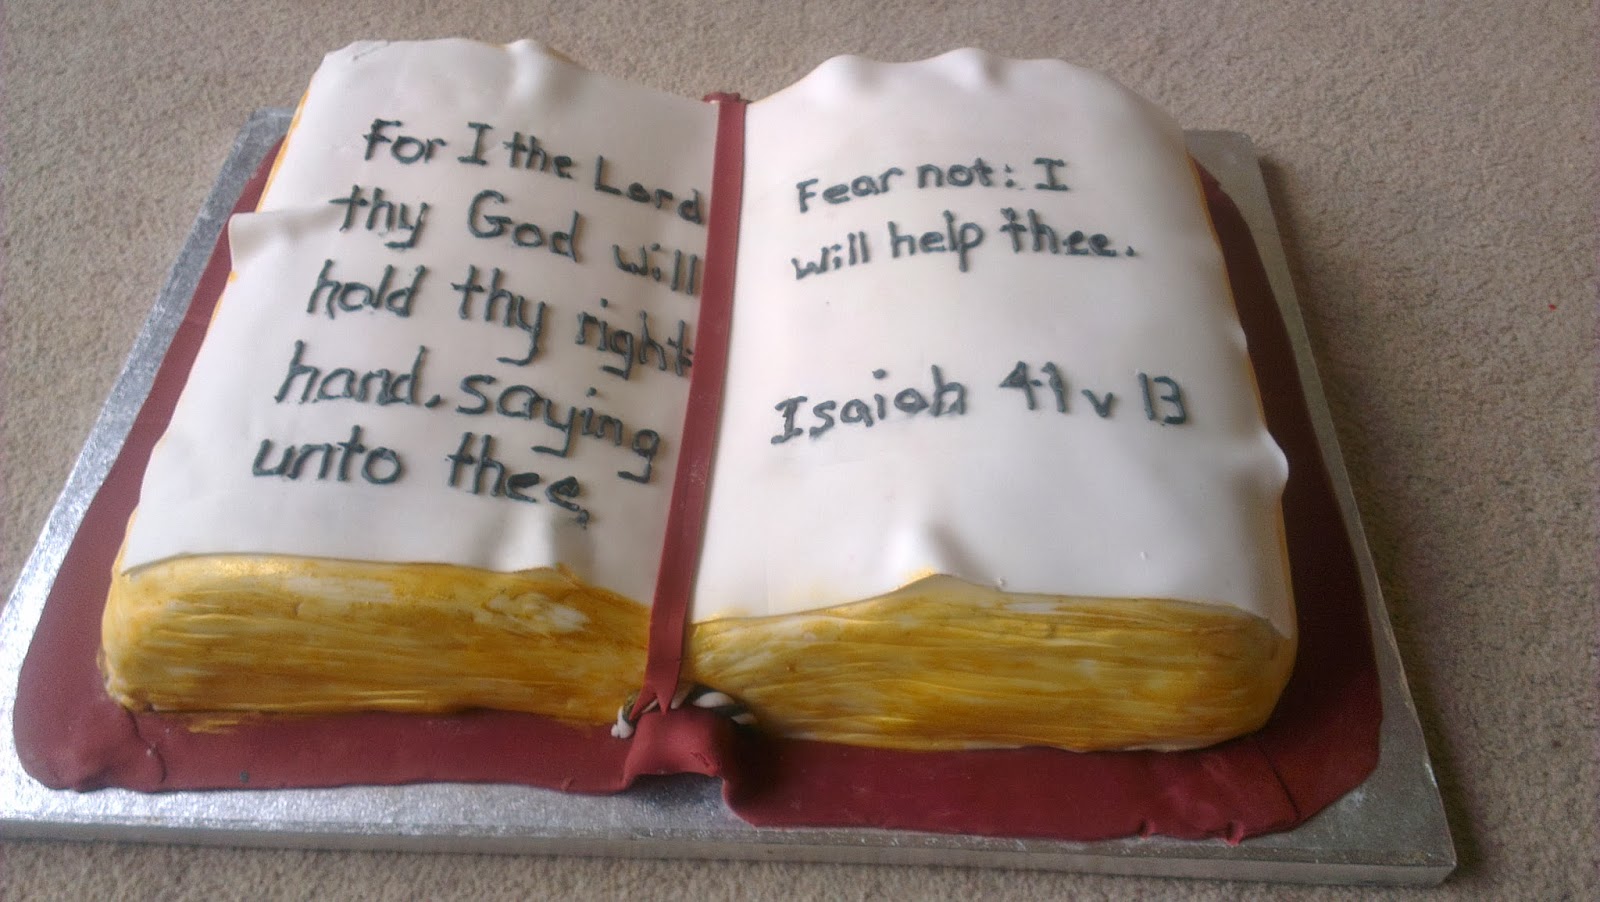 For I the Lord
thy God will
hold thy right
hand. saying
unto thee,
Fear not: I
will help thee.
Isaiah 41 v 13